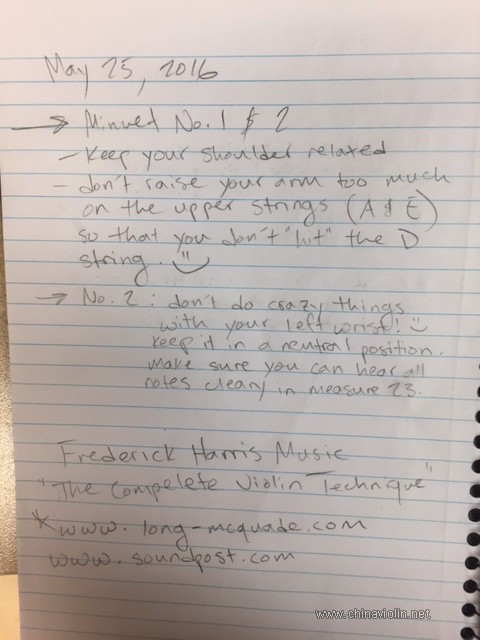 May 25, 2016
→ Minuet No. 1 & 2
- Keep your shoulder relaxed
- don't raise your arm too much
on the upper strings (A & E)
so that you don't "hit" the D
string.
→ No. 2 : don't do crazy things
with your left wrist!
keep it in a neutral position.
Make sure you can hear all
notes cleary in measure 23.
Frederick Harris Music
"The Compelete Violin Technique"
* www. long-mcquade.com
www. soundpost.com
www.chinaviolin.net